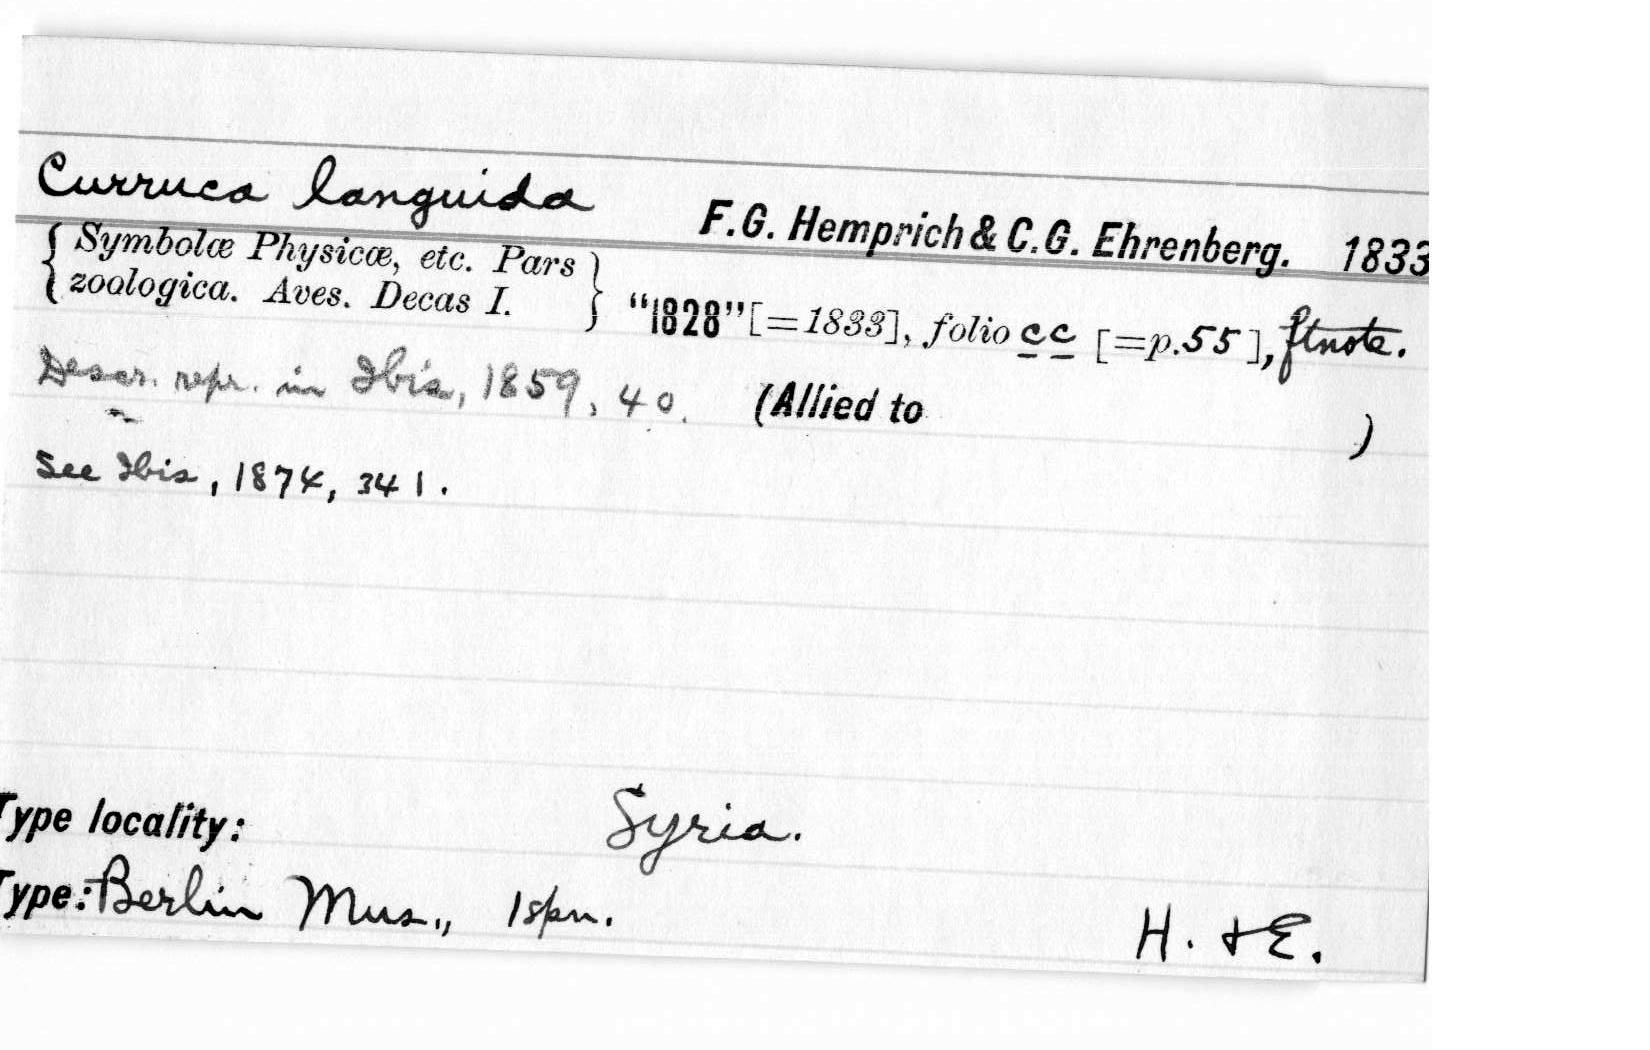 Curruca languida F.G. Hemprich & C.G. Ehrenberg. 1833
{ Symbolæ Physicæ, etc. Pars
zoologica. Aves. Decas I. } "1828" [=1833], folio cc [=p.55], ftnote.
Descr. repr. in Ibis, 1859, 40. (Allied to )
See Ibis, 1874, 341.
Type locality: Syria.
Type: Berlin Mus., 1 spn. H. & E.